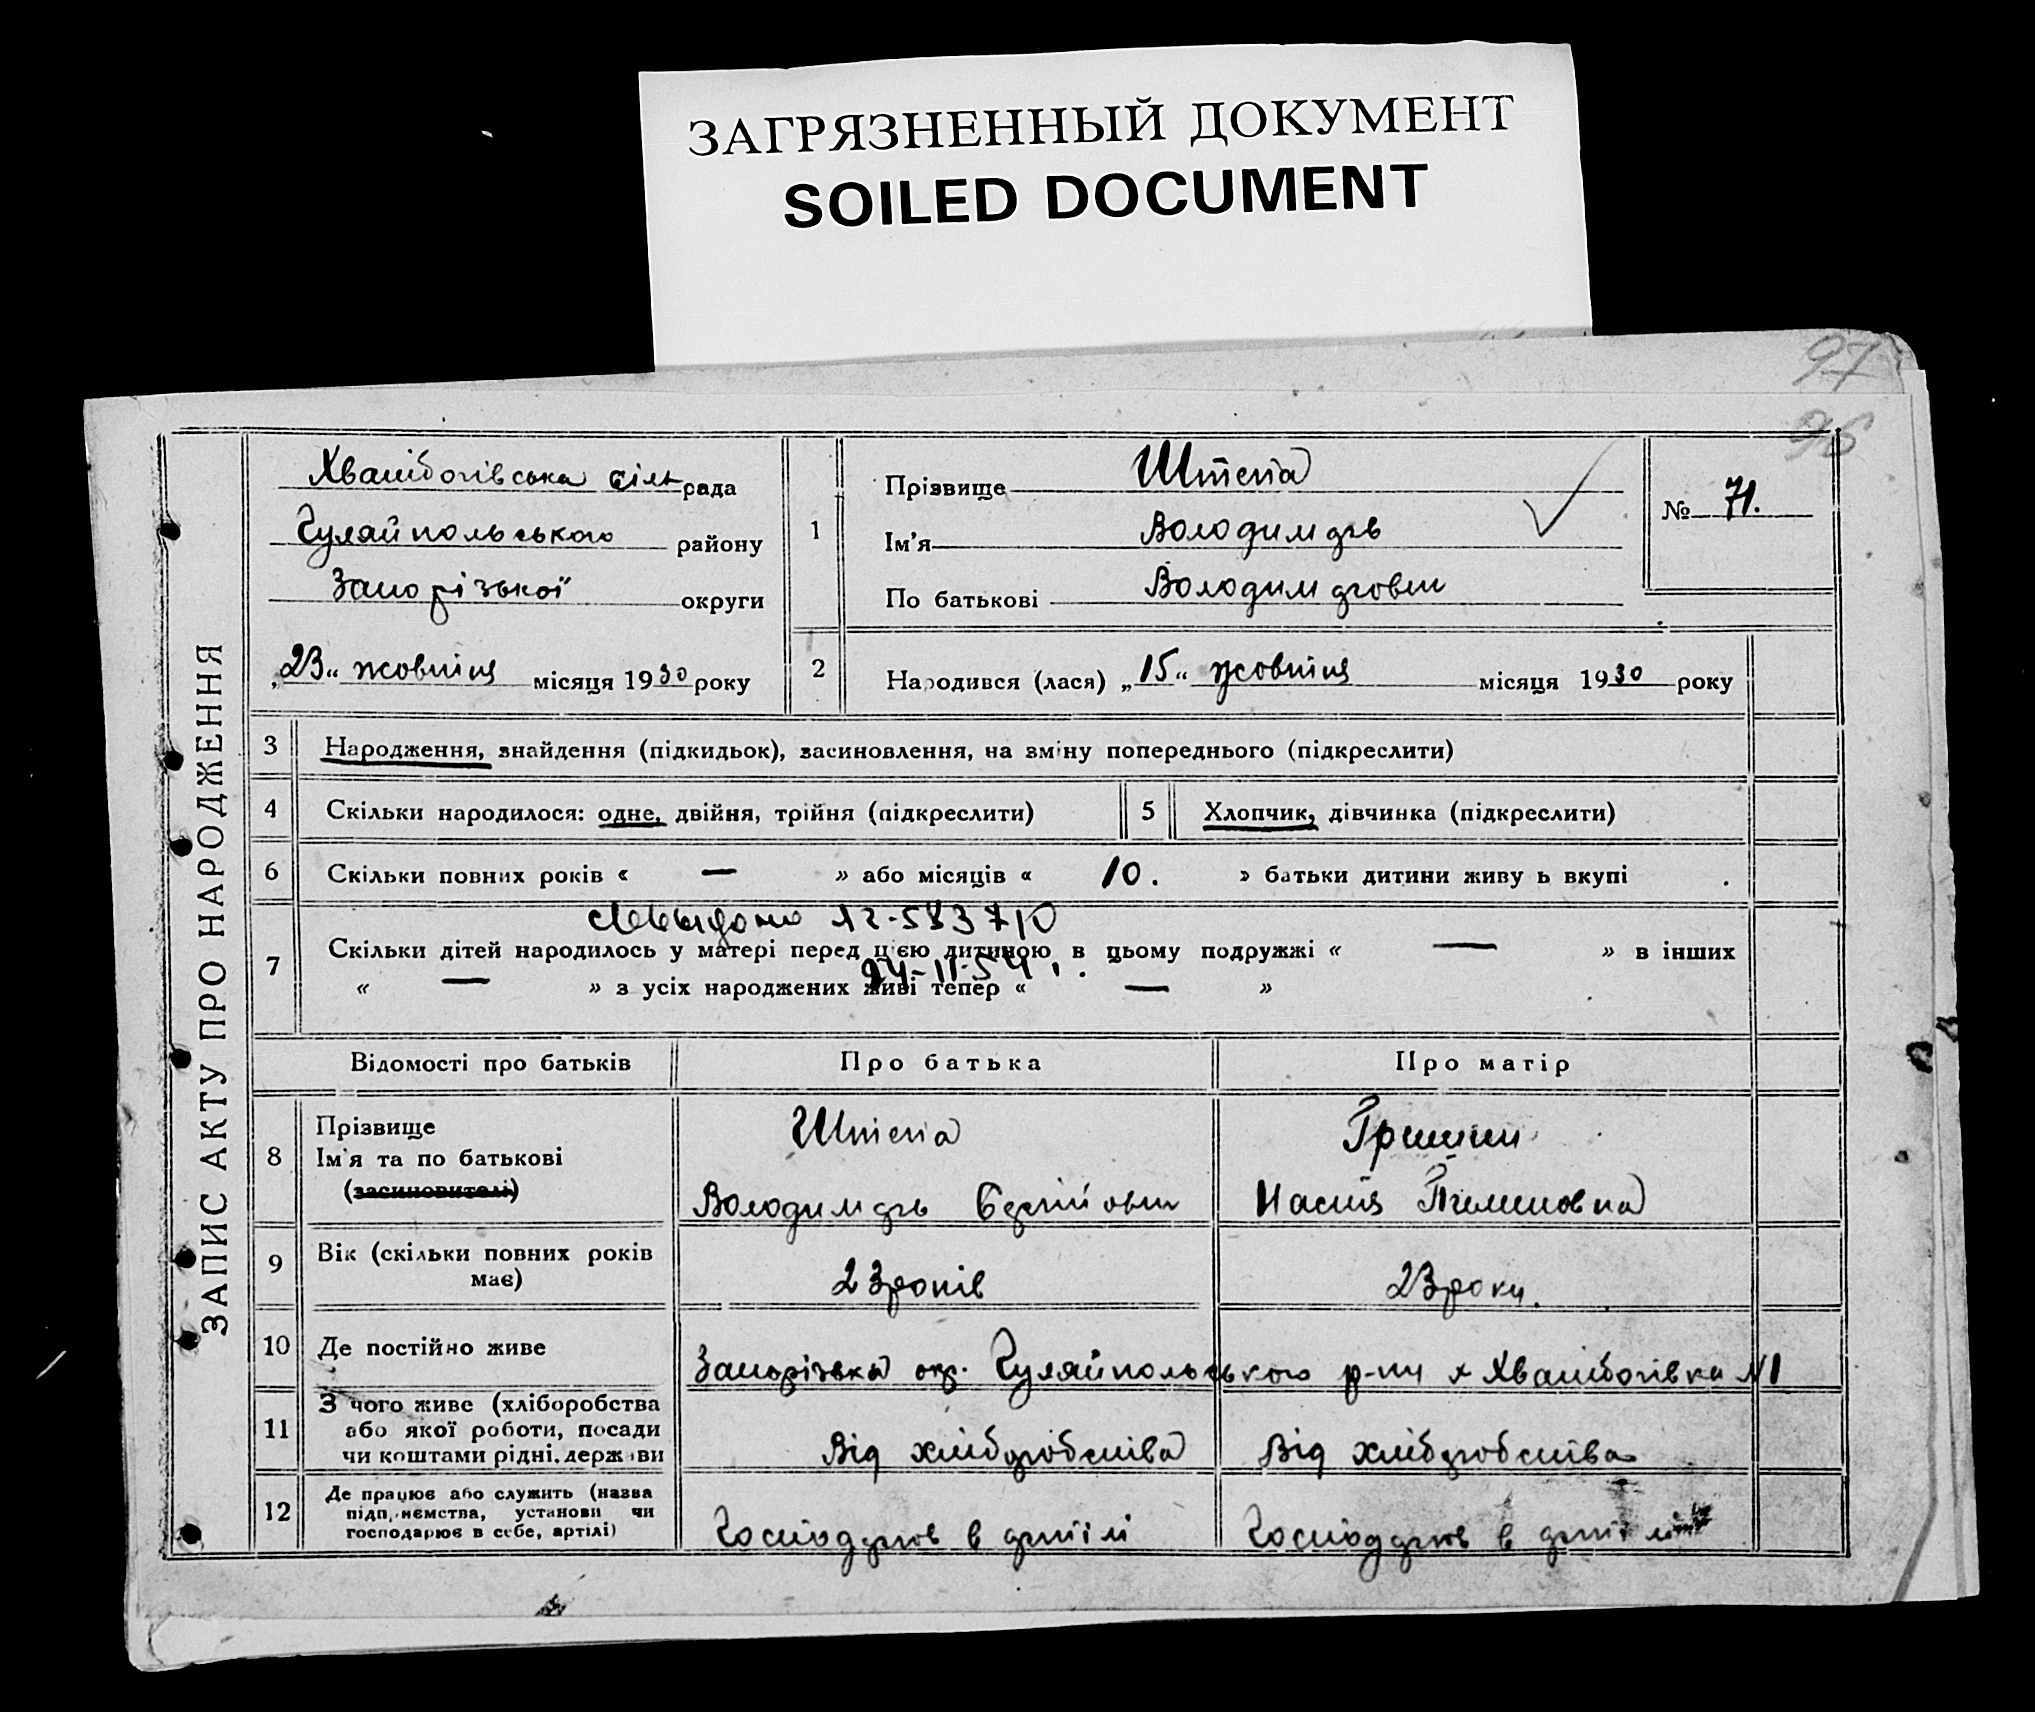 ЗАГРЯЗНЕННЫЙ ДОКУМЕНТ
SOILED DOCUMENT
97
96
ЗАПИС АКТУ ПРО НАРОДЖЕННЯ
Хвалібогівська сільрада
Гуляйпольського району
Запорізької округи
„23“ жовтня місяця 1930 року
1
Прізвище Штепа
Ім'я Володимир
По батькові Володимирович
№ 71.
2 Народився (лася) „15“ жовтня місяця 1930 року
3 Народження, знайдення (підкидьок), засиновлення, на зміну попереднього (підкреслити)
4 Скільки народилося: одне, двійня, трійня (підкреслити)
5 Хлопчик, дівчинка (підкреслити)
6 Скільки повних років « — » або місяців « 10. » батьки дитини живу ь вкупі
7 Скільки дітей народилось у матері перед цією дитиною в цьому подружжі « — » в інших
« — » з усіх народжених живі тепер « — »
Відомості про батьків Про батька Про матір
8 Прізвище
Ім'я та по батькові
(засиновителі)
Штепа
Володимир
Настя
9 Вік (скільки повних років
має)
23 років
23 роки.
10 Де постійно живе
Запорізька окр. Гуляйпольського р-ну х Хвалібогівка N1
11 З чого живе (хліборобства
або якої роботи, посади
чи коштами рідні, держави
Від хліборобства
Від хліборобства
12 Де працює або служить (назва
підприємства, установи чи
господарює в себе, артілі)
Господарює в артілі
Господарює в артілі